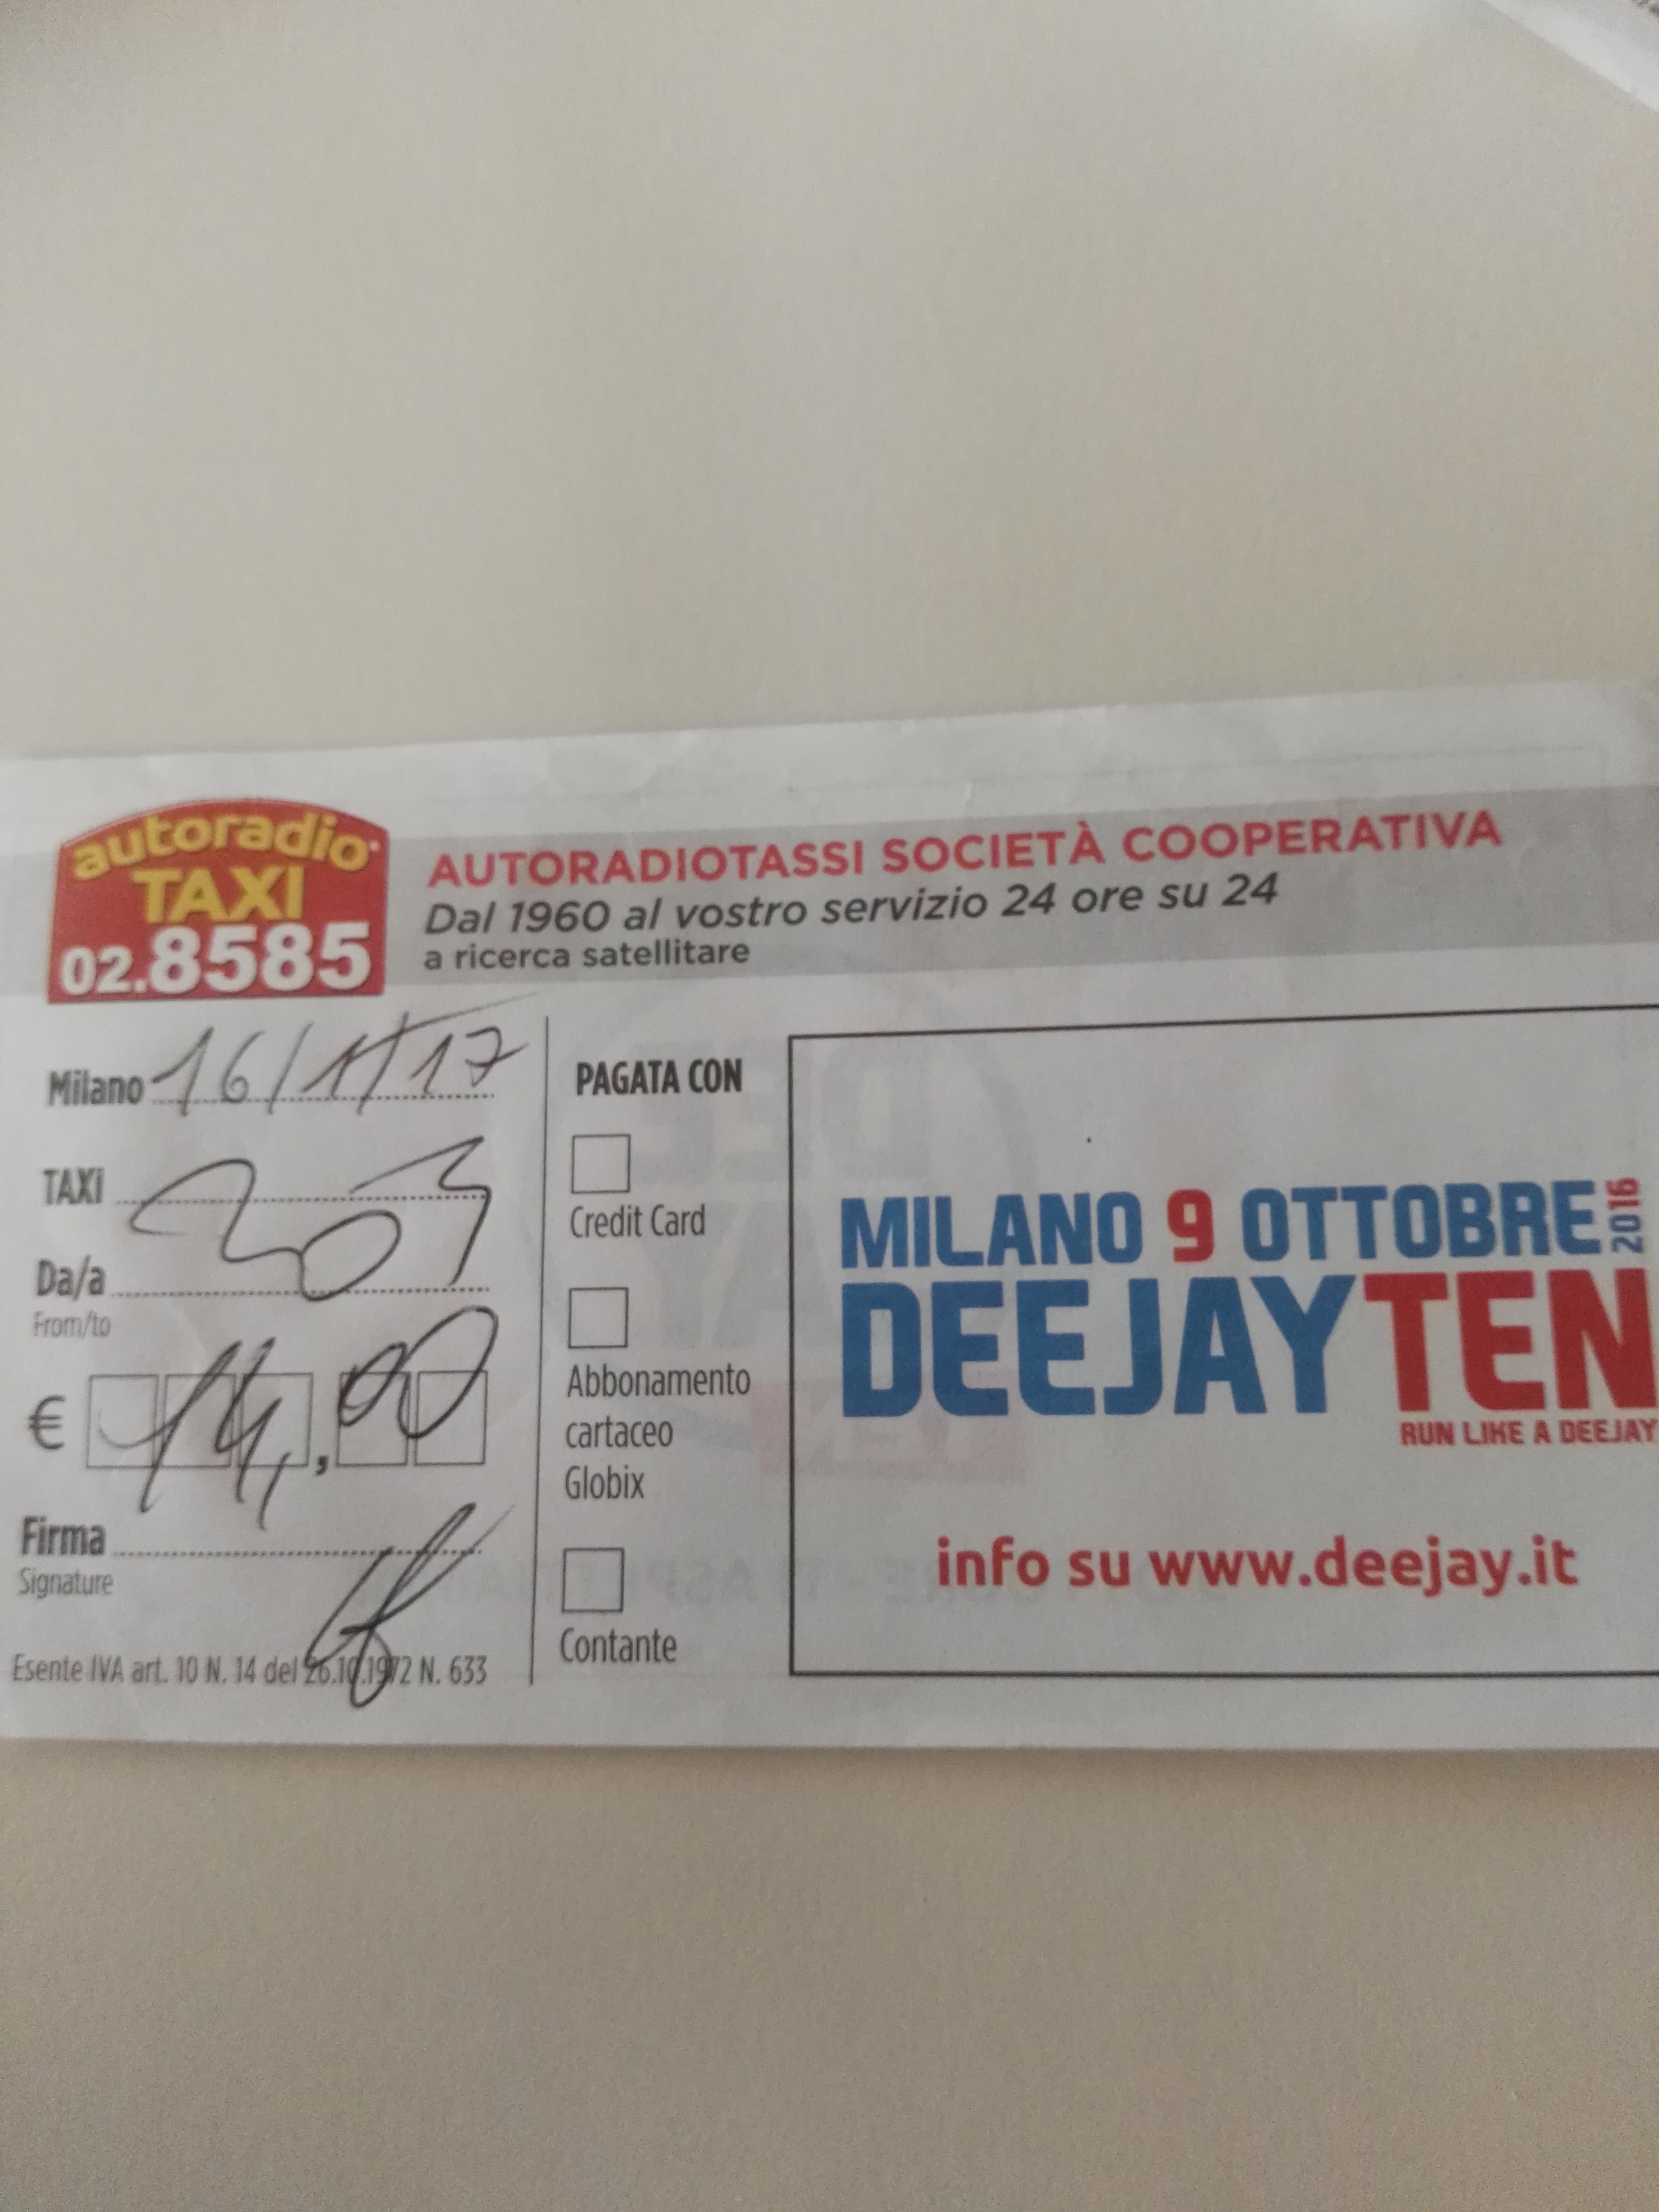 autoradio
TAXI
02.8585
AUTORADIOTASSI SOCIETÀ COOPERATIVA
Dal 1960 al vostro servizio 24 ore su 24
a ricerca satellitare
Milano 16/1/17
TAXi 203
Da/a
From/to
€ 14,00
Firma
Signature
Esente IVA art. 10 N. 14 del 26.10.1972 N. 633
PAGATA CON
Credit Card
Abbonamento
cartaceo
Globix
Contante
MILANO 9 OTTOBRE 2016
DEEJAYTEN
RUN LIKE A DEEJAY
info su www.deejay.it